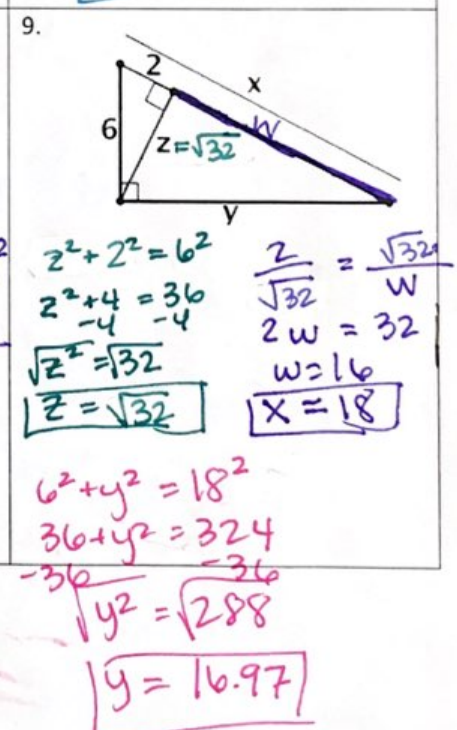 9.
2
x
6
W
z=√32
y
z² + 2² = 6²
z² + 4 = 36
-4 -4
√z² = √32
z = √32
2/√32 = √32/W
2w = 32
w = 16
x = 18
6² + y² = 18²
36 + y² = 324
-36 -36
√y² = √288
y = 16.97